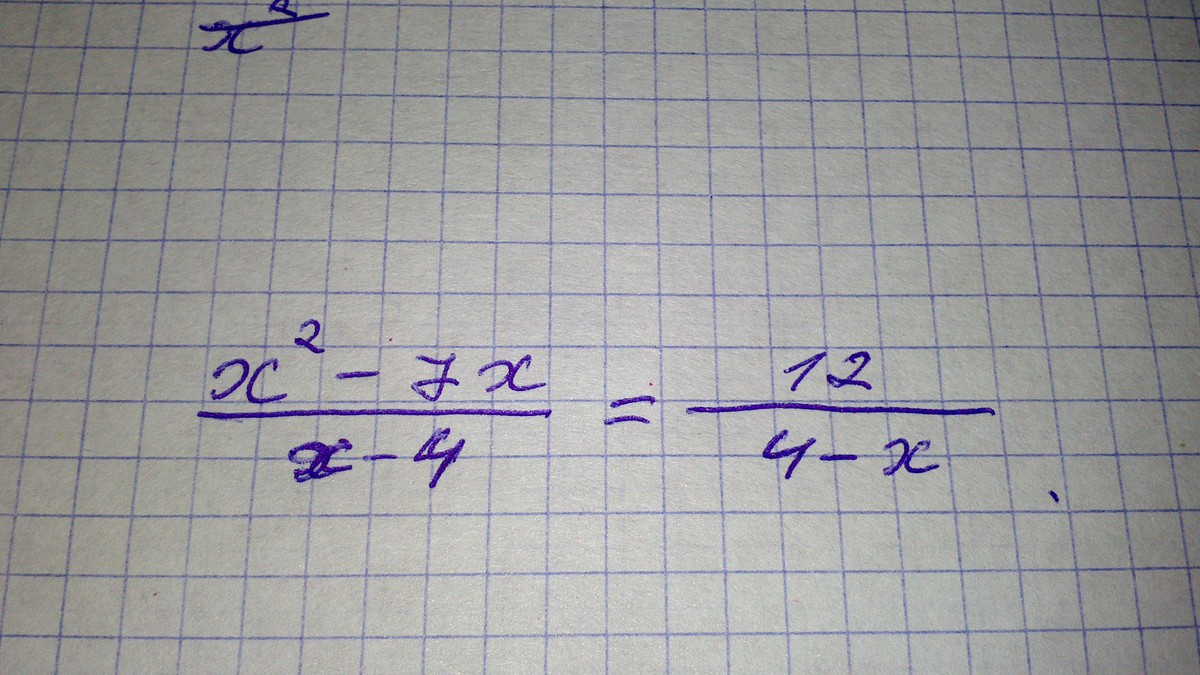 x²
x² - 7x / x - 4 = 12 / 4 - x